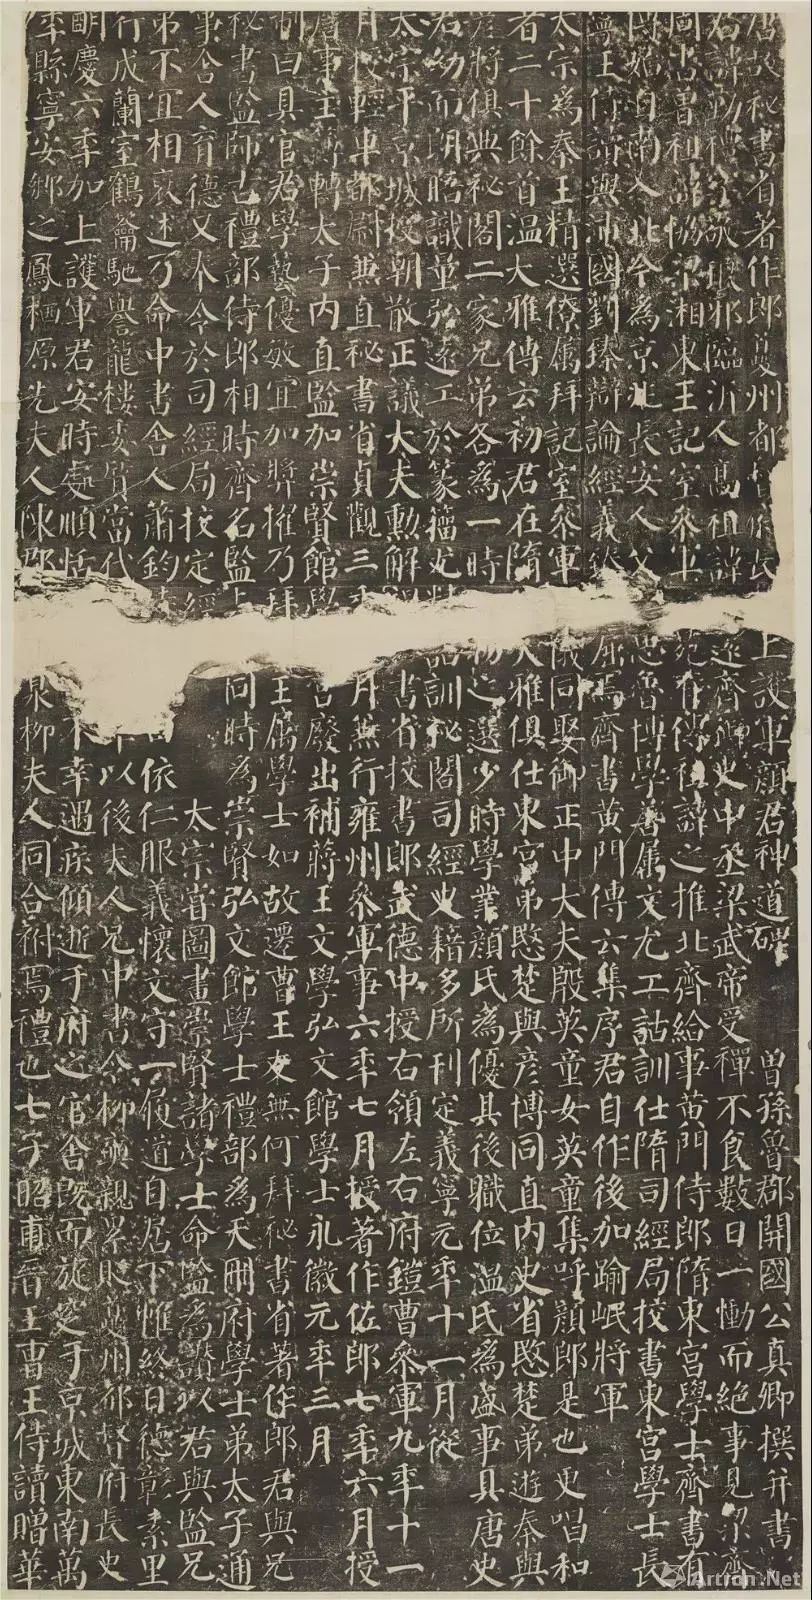 唐故秘書省著作郎夔州都督府長史上護軍顏君神道碑 曾孫魯郡開國公真卿撰并書
君諱勤禮字敬琅邪臨沂人高祖諱遠齊御史中丞梁武帝受禪不食數日一慟而絕事見梁齊
周書曾祖諱協梁湘東王記室參軍苑有傳祖諱之推北齊給事黃門侍郎隋東宮學士齊書有
傳始自南入北今為京兆長安人父思魯博學善屬文尤工詁訓仕隋司經局校書東宮學士長
寧王侍讀與沛國劉臻辯論經義臻屈焉齊書黃門傳云集序君自作後加踰岷將軍
太宗為秦王精選僚屬拜記室參軍儀同娶御正中大夫殷英童女英童集呼顏郎是也更唱和
者二十餘首溫大雅傳云初君在隋大雅俱仕東宮弟愍楚與彥博同直內史省愍楚弟遊秦與
彥將俱典秘閣二家兄弟各為一時物之選少時學業顏氏為優其後職位溫氏為盛事具唐史
君幼而朗晤識量弘遠工於篆籀尤精詁訓秘閣司經史籍多所刊定義寧元年十一月從
太宗平京城授朝散正議大夫勳解褐書省校書郎武德中授右領左右府鎧曹參軍九年十一
月授輕車都尉兼直秘書省貞觀三年月兼行雍州參軍事六年七月授著作佐郎七年六月授
詹事主簿轉太子內直監加崇賢館學宮廢出補蔣王文學弘文館學士永徽元年三月
制曰具官君學藝優敏宜加獎擢乃拜王屬學士如故遷曹王友無何拜秘書省著作郎君與兄
秘書監師古禮部侍郎相時齊名監與同時為崇賢弘文館學士禮部為天冊府學士弟太子通
事舍人育德又奉令於司經局校定經 太宗嘗圖畫崇賢諸學士命監為讚以君與監兄
弟不宜相褒述乃命中書舍人蕭鈞特依仁服義懷文守一履道自居下帷終日德彰素里
行成蘭室鶴籥馳譽龍樓委質當代以後夫人兄中書令柳奭親累貶夔州都督府長史
明慶六年加上護軍君安時處順恬不幸遇疾傾逝于府之官舍既而旋窆于京城東南萬
年縣寧安鄉之鳳栖原先夫人陳郡泉柳夫人同合祔焉禮也七子昭甫晉王曹王侍讀贈華
Artron.Net